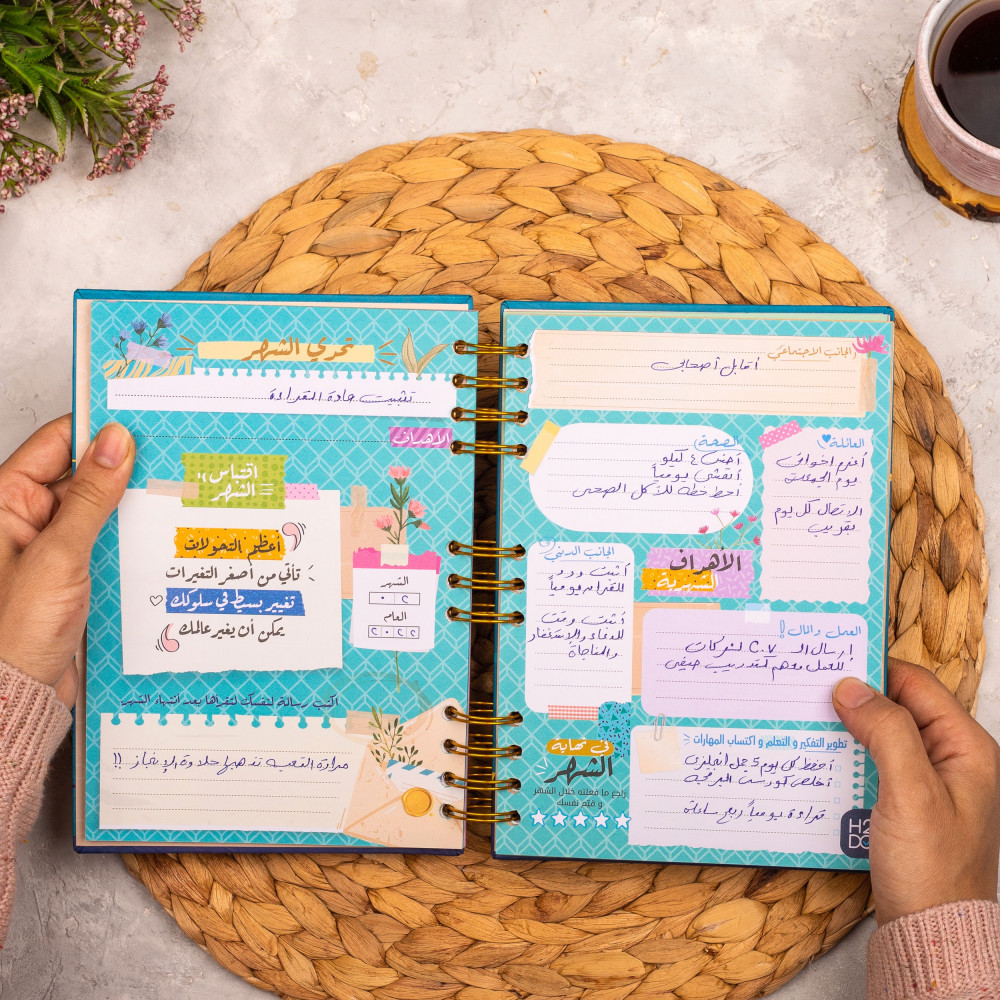 تحدي الشهر
تثبيت عادة القراءة
الاهداف
اقتباس
الشهر
أعظم التحولات
تأتي من أصغر التغيرات
تغيير بسيط في سلوكك
يمكن أن يغير عالمك
الشهر
٠ ٢
العام
٢ ٠ ٢ ٢
اكتب رسالة لنفسك لتقرأها بعد انتهاء الشهر
مرارة التعب تذهبها حلاوة الإنجاز !!
الجانب الاجتماعي
أقابل أصحابي
الصحة
أخس ٤ كيلو
أتمشى يومياً
أحط خطة للأكل الصحي
العائلة
أعزم اخواتي
يوم الجمعة
الاتصال كل يوم
بقريب
الجانب الديني
أثبت ورد
للقرآن يومياً
أثبت وقت
للدعاء والإستغفار
والمناجاة
الأهداف
الشهرية
العمل والمال !
إرسال الـ C.V لشركات
للعمل معهم لتدريب صيفي
تطوير التفكير و التعلم و اكتساب المهارات
أحفظ كل يوم 5 جمل انجليزي
أخلص كورس البرمجة
قراءة يومياً ربع ساعة
في نهاية
الشهر
راجع ما فعلته خلال الشهر
و قيّم نفسك